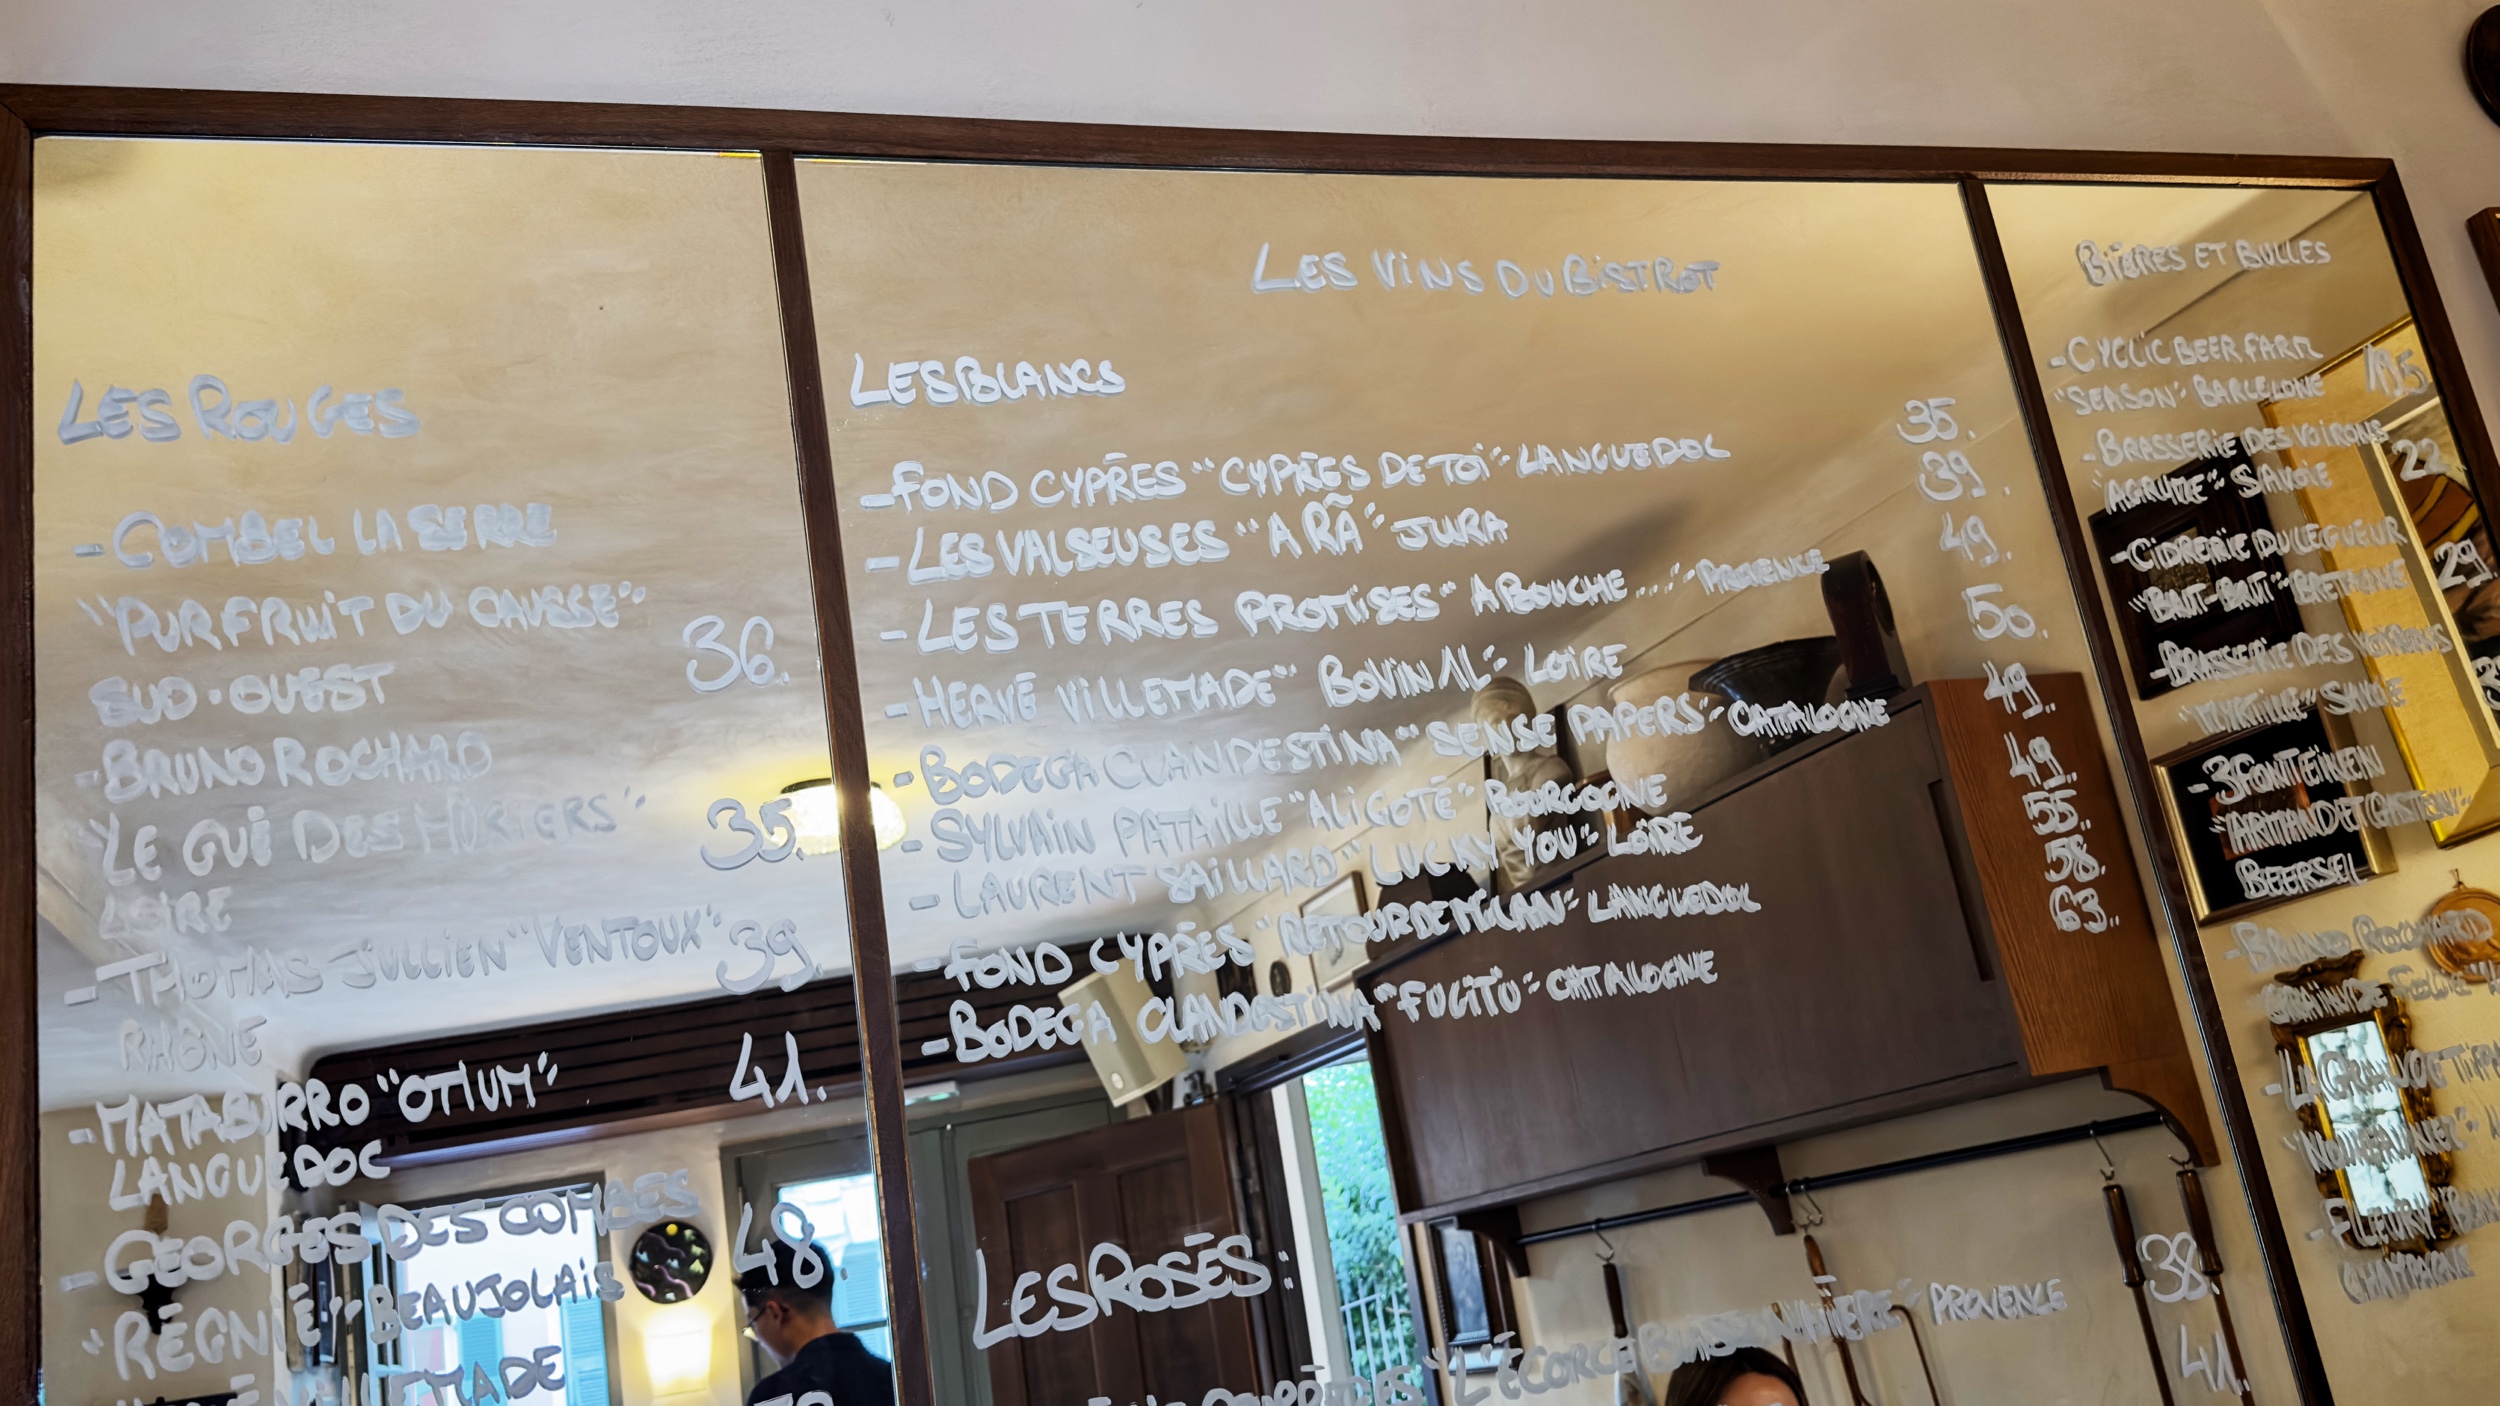 LES ROUGES
- COMBEL LA SERRE
"PUR FRUIT DU CAUSSE"
SUD-OUEST 36.
- BRUNO ROCHARD
"LE GUÉ DES MÛRIERS" 35.
LOIRE
- THOMAS JULLIEN "VENTOUX" 39.
RHÔNE
- MATABURRO "OTIUM" 41.
LANGUEDOC
- GEORGES DES COMBES
"RÉGNIÉ" BEAUJOLAIS 48.
VILLEMADE
LES VINS DU BISTROT
LES BLANCS
- FOND CYPRÈS "CYPRÈS DE TOÏ" - LANGUEDOC 35.
- LES VALSEUSES "A RÃ" JURA 39.
- LES TERRES PROMISES "A BOUCHE..." - PROVENCE 49.
- HERVÉ VILLEMADE "BOVIN AL" - LOIRE 50.
- BODEGA CLANDESTINA "SENSE PAPERS" - CATALOGNE 49.
- SYLVAIN PATAILLE "ALIGOTÉ" BOURGOGNE 49.
- LAURENT SAILLARD "LUCKY YOU" - LOIRE 55.
- FOND CYPRÈS "RETOUR DE MÉLAN" - LANGUEDOC 58.
- BODEGA CLANDESTINA "FUGITÚ" - CATALOGNE 63.
LES ROSÉS:
PROVENCE 38.
"L'ÉCORCE 41.
BIÈRES ET BULLES
- CYCLIC BEER FARM
"SEASON" BARCELONE 195.
- BRASSERIE DES VOIRONS
"AGRUME" - SAVOIE 22
- CIDRERIE DU LEGUEUR
"BRUT-BRUT" - BRETAGNE 29
- BRASSERIE DES VOIRONS
"MYRTILLE" SAVOIE
- 3 FONTEINEN
"ARMAND ET GASTON"
BEERSEL
- BRUNO ROCHARD
- LA GRAVOTTI
- FLEURY
CHAMPAGNE